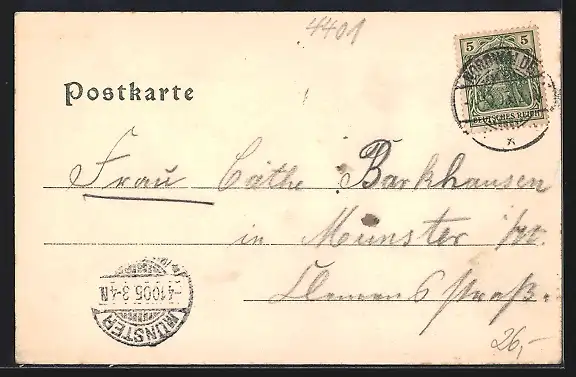 4401
5 5
NORDWALDE
DEUTSCHES REICH
Postkarte
Frau Cäthe Barkhausen
in Münster i/W.
Clemensstraß.
MÜNSTER
-4.10.05.3-4N.
26,-